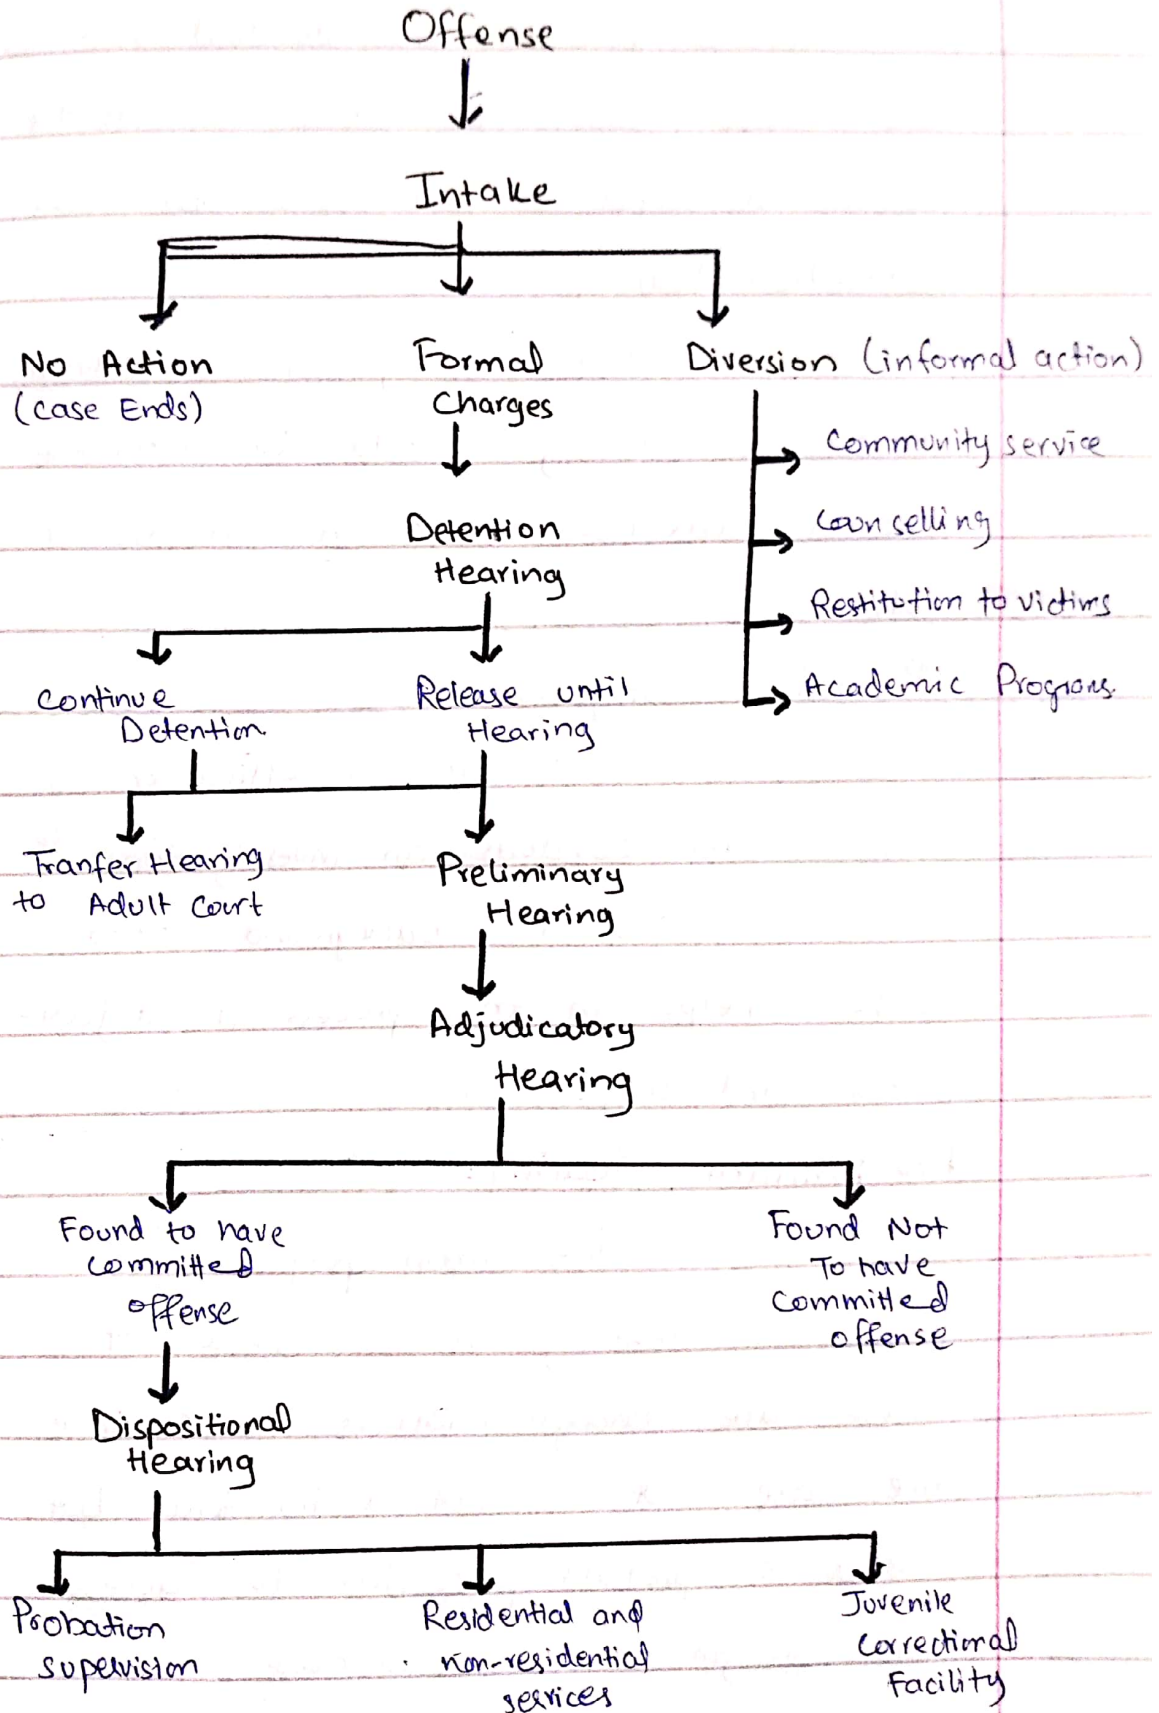 Offense
Intake
No Action
(Case Ends)
Formal
Charges
Diversion (informal action)
Community service
Counselling
Restitution to victims
Academic Progrons.
Detention
Hearing
Continue
Detention.
Release until
Hearing
Tranfer Hearing
to Adult Court
Preliminary
Hearing
Adjudicatory
Hearing
Found to have
committed
offense
Found Not
To have
Committed
offense
Dispositional
Hearing
Probation
supervision
Residential and
non-residential
services
Juvenile
correctional
Facility